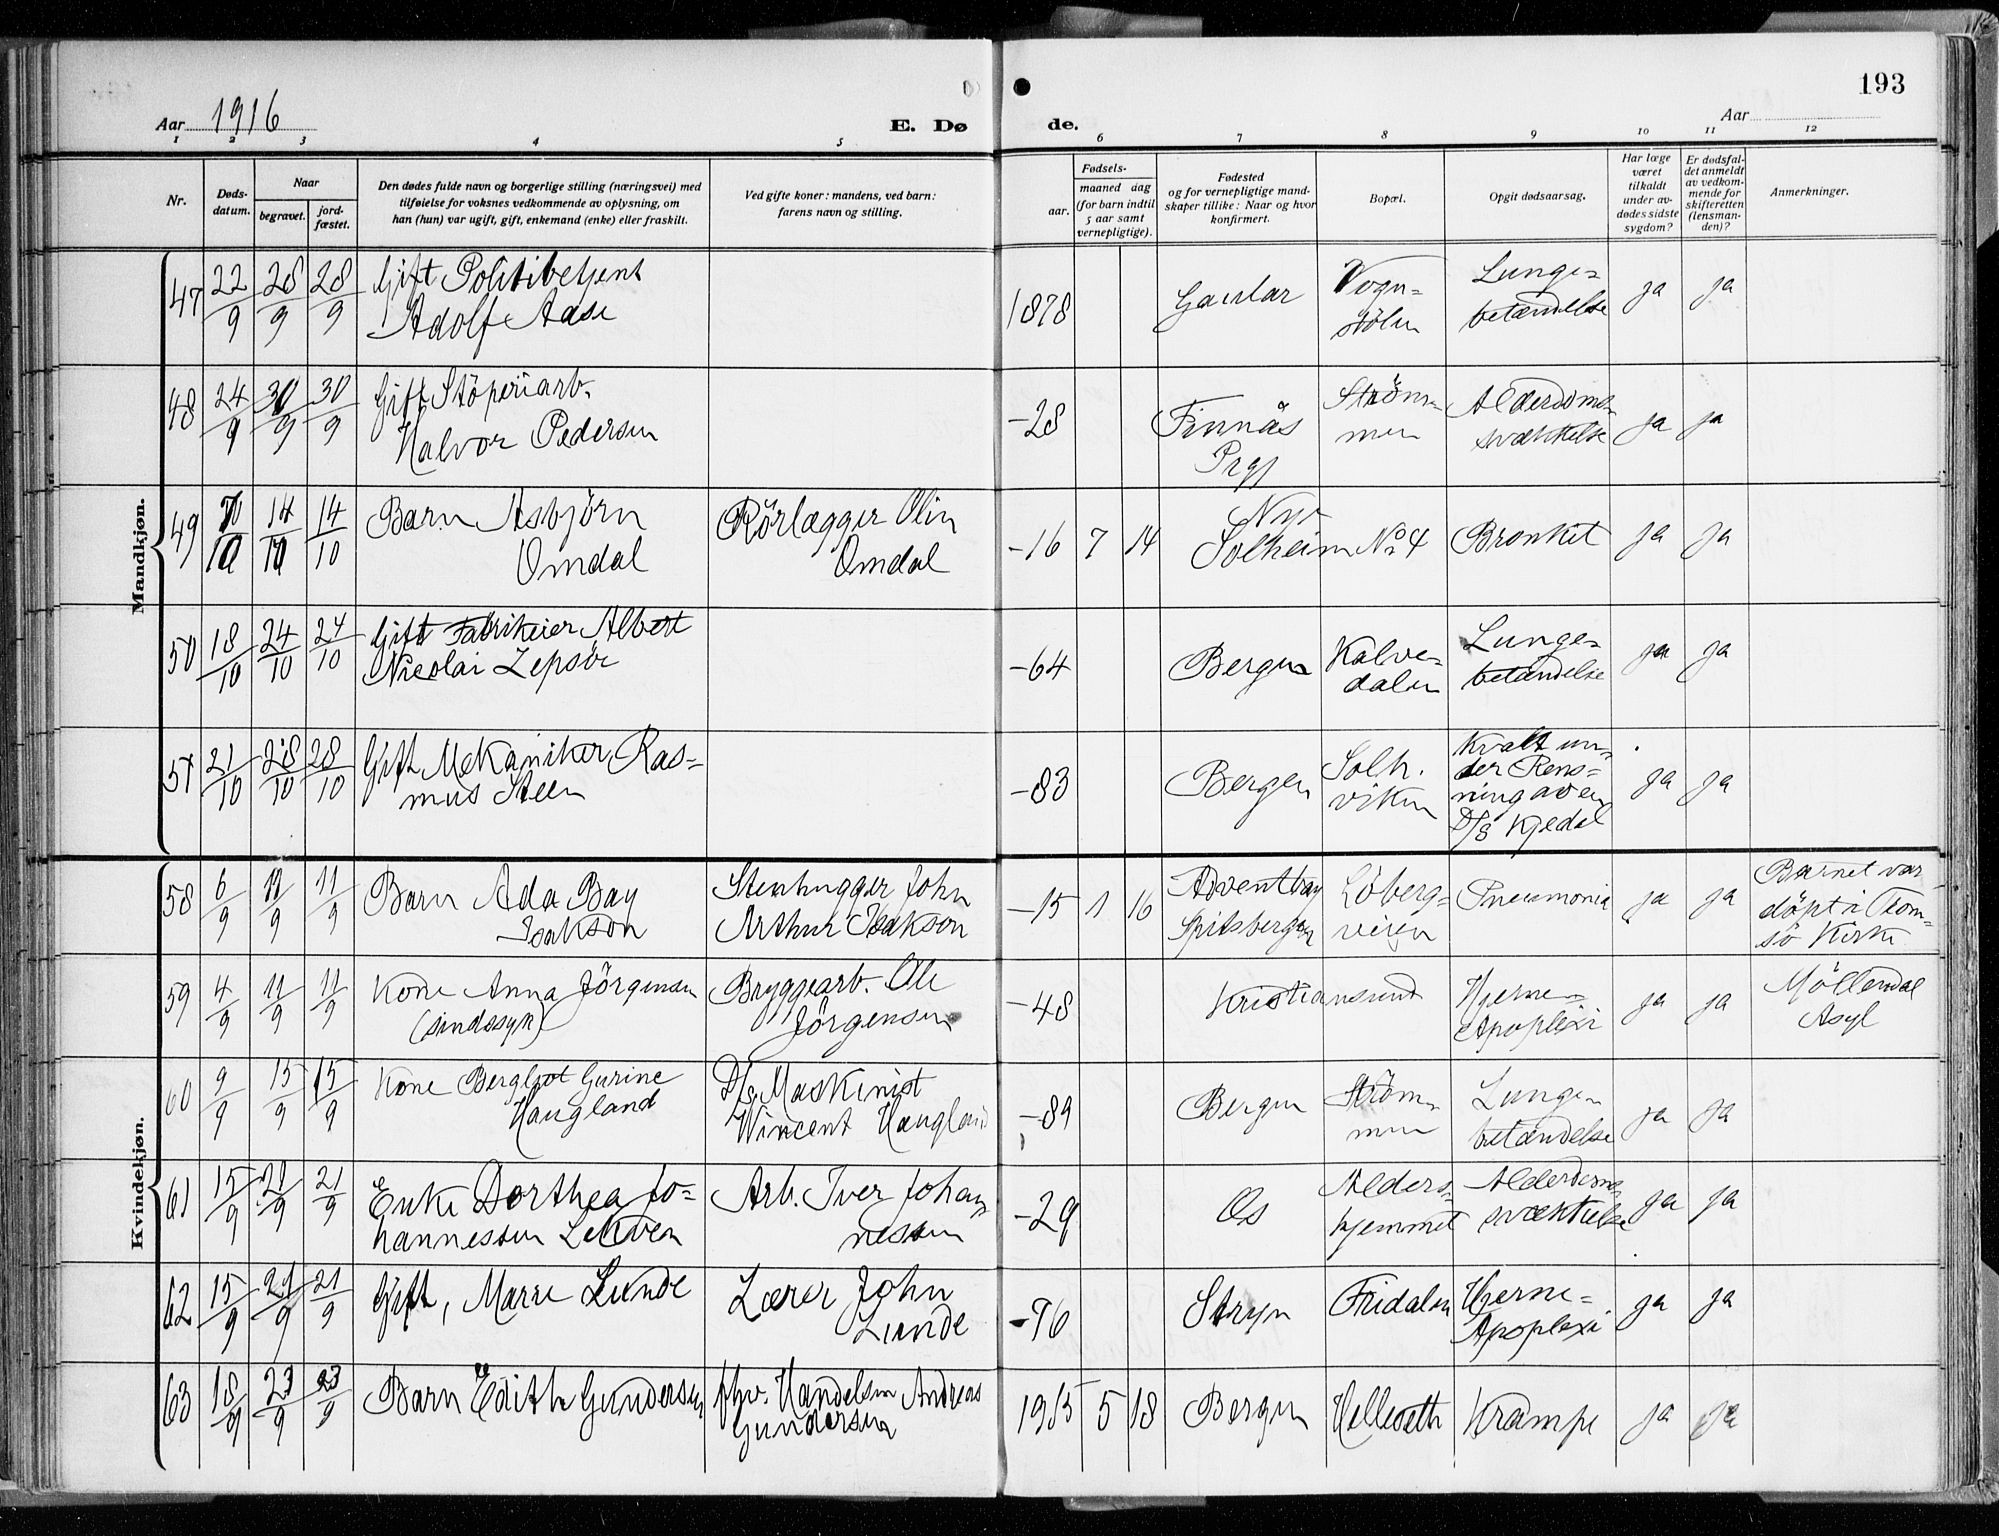 193
Aar 1916
E. Dø
de.
Aar
1 2 3 4 5 6 7 8 9 10 11 12
Nr.
Døds-
datum.
Naar
begravet.
jord-
fæstet.
Den dødes fulde navn og borgerlige stilling (næringsvei) med
tilføielse for voksnes vedkommende av oplysning, om
han (hun) var ugift, gift, enkemand (enke) eller fraskilt.
Ved gifte koner: mandens, ved barn:
farens navn og stilling.
Fødsels-
aar.
maaned dag
(for barn indtil
5 aar samt
vernepligtige).
Fødested
og for vernepligtige mand-
skaper tillike: Naar og hvor
konfirmert.
Bopæl.
Opgit dødsaarsag.
Har læge
været
tilkaldt
under av-
dødes sidste
sygdom?
Er dødsfal-
det anmeldt
av vedkom-
mende for
skifteretten
(lensman-
den)?
Anmerkninger.
Mandkjøn.
47 22/9 28/9 28/9 Gift Politibetjent
Adolf Aase
1878 Gaular Vogn-
stölen
Lunge-
betændelse
ja ja
48 24/9 30/9 30/9 Gift Stöperiarb.
Halvor Pedersen
-28 Finnås
Prgj
Ström-
men
Alderdoms-
svækkelse
ja ja
49 10/10 14/10 14/10 Barn Asbjörn
Omdal
Rörlægger Olin
Omdal
-16 7 14 Nyr
Solheim No 4 Bronkit ja ja
50 18/10 24/10 24/10 Gift Fabrikeier Albert
Nicolai Lepsöe
-64 Bergen Kalve-
dalen
Lunge-
betændelse
ja ja
51 21/10 28/10 28/10 Gift Mekaniker Ras-
mus Steen
-83 Bergen Solh.
viken
Kvalt un-
der Rens-
ning av en
D/S Kjedel
ja ja
Kvindekjøn.
58 6/9 11/9 11/9 Barn Ada Bay
Isakson
Stenhugger John
Arthur Isakson
-15 1 16 Adventbay
Spitsbergen
Löberg-
veien
Pneumonia ja ja Barnet var
döpt i Trom-
sö Kirke
59 4/9 11/9 11/9 Kone Anna Jörgensen
(sindssyk)
Bryggearb. Ole
Jörgensen
-48 Kristiansund Hjerne-
Apoplexi
ja ja Möllendal
Asyl
60 9/9 15/9 15/9 Kone Bergliot Gurine
Haugland
D/S Maskinist
Wincent Haugland
-89 Bergen Ström-
men
Lunge-
betændelse
ja ja
61 15/9 21/9 21/9 Enke Dorthea Jo-
hannessen Lekven
Arb. Iver Johan-
nessen
-29 Os Alders-
hjemmet
Alderdoms-
svækkelse
ja ja
62 15/9 21/9 21/9 Gift, Marie Lunde
Lærer John
Lunde
-76 Stryn Fridalen Hjerne-
Apoplexi
ja ja
63 18/9 23/9 23/9 Barn Edith Gundersen
fhv. Handelsm Andreas
Gundersen
1915 5 18 Bergen Helleseth Krampe ja ja